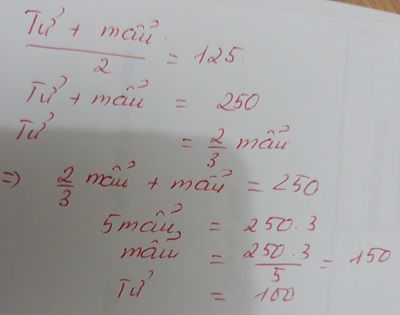 Tử + mẫu / 2 = 125.
Tử + mẫu = 250
Tử = 2/3 mẫu
=> 2/3 mẫu + mẫu = 250
5 mẫu = 250.3
mẫu = 250.3 / 5 = 150
Tử = 100